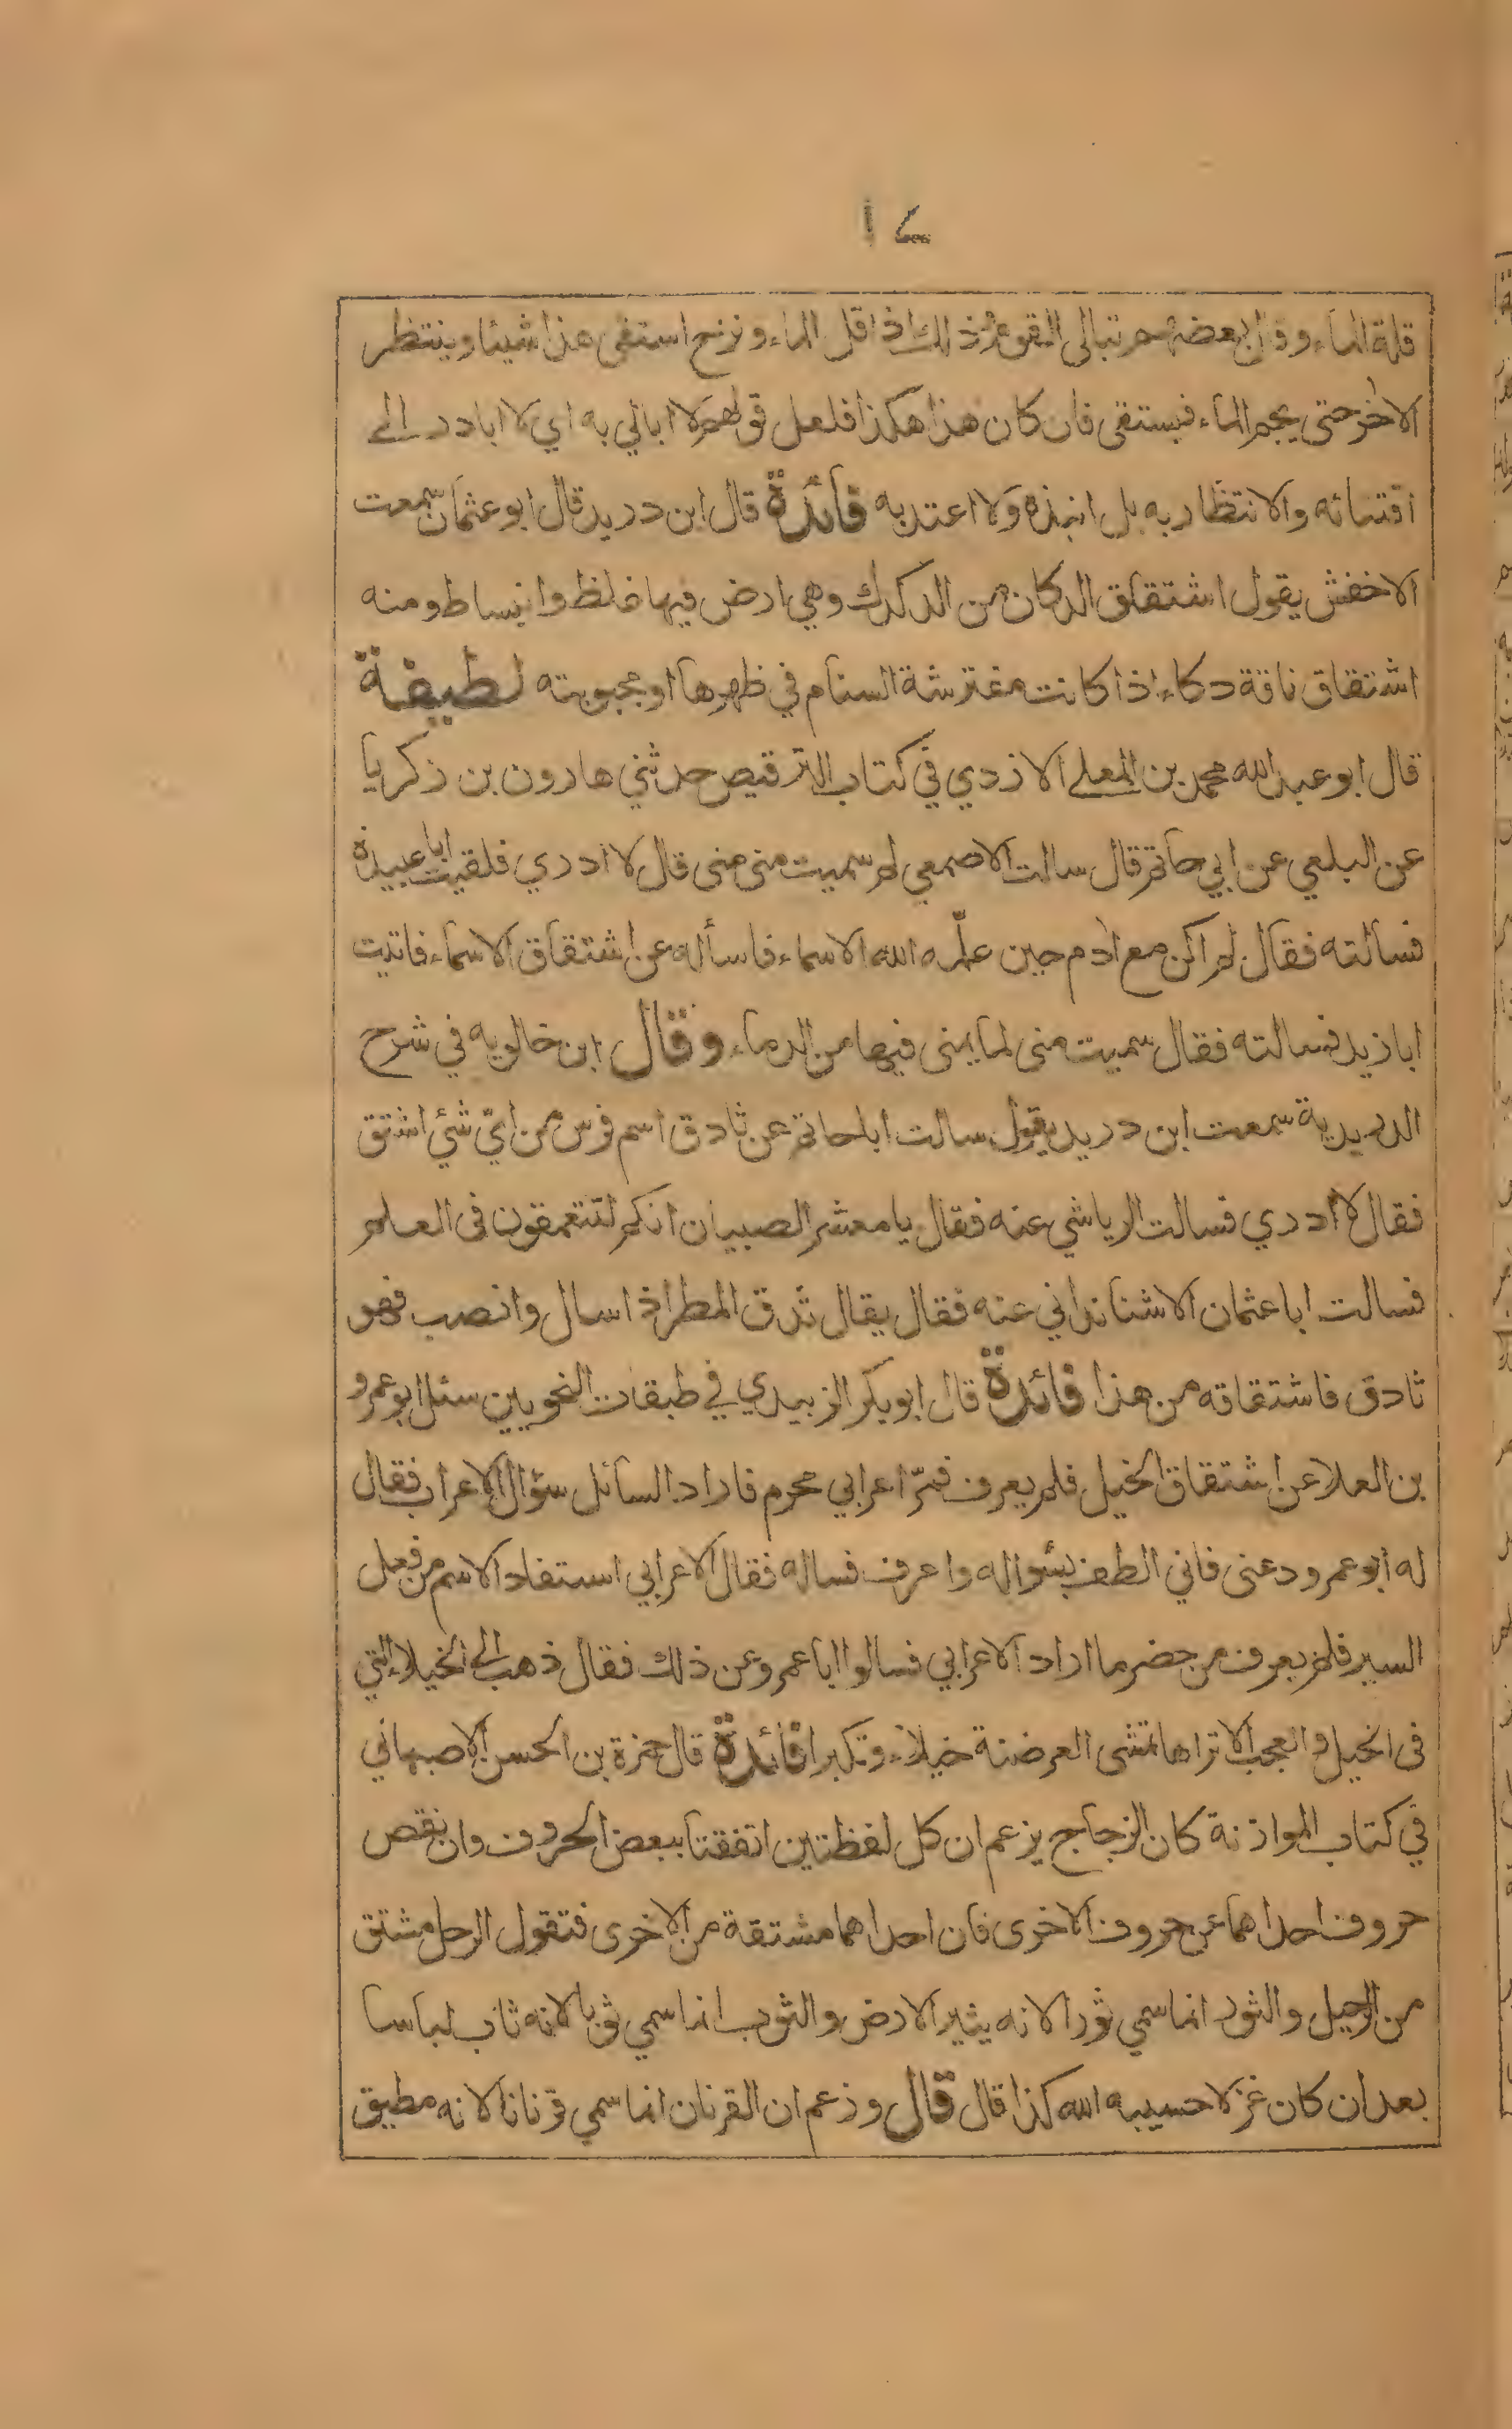 ١٤
قلة الماء وقال بعضهم تبالى القوم ذلك اذا قل الماء ونزح استقى هذا شيئا وينتظر
الاخر حتى يجم الماء فيستقى فان كان هذا هكذا فلعل قولهم لا ابالي به اي لا ابادر الى
اقتنائه والانتظار به بل انبذه ولا اعتد به فائدة قال ابن دريد قال ابو عثمان سمعت
الاخفش يقول اشتقاق الدكان من الدكدك وهي ارض فيها غلظ وانبساط ومنه
اشتقاق ناقة دكاء اذا كانت مفترشة السنام في ظهرها او مجبوبته لطيفة
قال ابو عبد الله محمد بن المعلى الازدي في كتاب الترقيص حدثني هارون بن زكريا
عن البلعي عن ابي حاتم قال سالت الاصمعي لم سميت منى منى قال لا ادري فلقيت ابا عبيدة
فسالته فقال لم اكن مع ادم حين علّمه الله الاسماء فاسأله عن اشتقاق الاسماء فاتيت
ابا زيد فسالته فقال سميت منى لما يمنى فيها من الدماء وقال ابن خالويه في شرح
الدريدية سمعت ابن دريد يقول سالت ابا حاتم عن ثادق اسم فرس من ايّ شئ اشتق
فقال لا ادري فسالت الرياشي عنه فقال يا معشر الصبيان انكم لتتعمقون فى العلم
فسالت ابا عثمان الاشنانداني عنه فقال يقال ثدق المطر اذا سال وانصب فهو
ثادق فاشتقاقه من هذا فائدة قال ابو بكر الزبيدي في طبقات النحويين سئل ابو عمرو
بن العلا عن اشتقاق الخيل فلم يعرف فمرّ اعرابي محرم فاراد السائل سؤال الاعراب فقال
له ابو عمرو دعنى فاني الطف بسؤاله واعرف فساله فقال الاعرابي استفاد الاسم من فعل
السير فلم يعرف من حضر ما اراد الاعرابي فسالوا ابا عمرو عن ذلك فقال ذهب الى الخيلاء التي
فى الخيل والعجب الا تراها تمشى العرضنة خيلاء وتكبرا فائدة قال حمزة بن الحسن الاصبهاني
في كتاب الموازنة كان الزجاج يزعم ان كل لفظتين اتفقتا ببعض الحروف وان نقص
حروف احداهما عن حروف الاخرى فان احداهما مشتقة من الاخرى فتقول الرحل مشتق
من الرحيل والثور انما سمي ثورا لانه يثير الارض والثوب انما سمي ثوبا لانه ثاب لباسا
بعد ان كان غزلا حسيبه الله كذا قال قال وزعم ان القرنان انما سمي قرنانا لانه مطيق